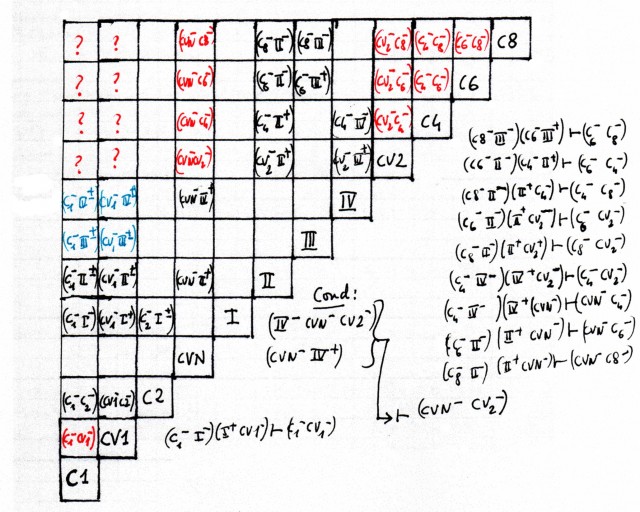 ? ? (CVN⁻ C8⁻) (C₈⁻ II⁻) (C₈⁻ III⁻) (CV₂⁻ C₈⁻) (C₄⁻ C₈⁻) (C₆⁻ C₈⁻) C8
? ? (CVN⁻ C₆⁻) (C₆⁻ II⁻) (C₆⁻ III⁺) (CV₂⁻ C₆⁻) (C₄⁻ C₆⁻) C6
? ? (CVN⁻ C₄⁻) (C₄⁻ II⁺) (C4⁻ IV⁻) (CV₂⁻ C₄⁻) C4
? ? (CVN⁻ CV₂⁻) (CV₂⁻ II⁺) (CV₂⁻ IV⁺) CV2
(C₁⁻ IV±) (CV₁⁻ IV±) (CVN⁻ IV±) IV
(C₁⁻ III±) (CV₁⁻ III±) III
(C₁⁻ II±) (CV₁⁻ II±) (CVN⁻ II±) II
(C₁⁻ I⁻) (CV₁⁻ I⁺) (C₂⁻ I±) I
CVN
(C₁⁻ C₂⁻) (CV1⁻ C2⁻) C2
(C₁⁻ CV₁⁻) CV1
C1
(C₁⁻ I⁻)(I⁺ CV1⁻) ⊢ (C₁⁻ CV₁⁻)
Cond:
(IV⁻ CVN⁻ CV2⁻)
(CVN⁻ IV⁺)
⊢ (CVN⁻ CV₂⁻)
(C8⁻ III⁻)(C6⁻ III⁺) ⊢ (C₆⁻ C₈⁻)
(C6⁻ II⁻)(C4⁻ II⁺) ⊢ (C₆⁻ C₄⁻)
(C8⁻ II⁻)(II⁺ C₄⁻) ⊢ (C₄⁻ C₈⁻)
(C₆⁻ II⁻)(II⁺ CV₂⁻) ⊢ (C₆⁻ CV₂⁻)
(C₈⁻ II⁻)(II⁺ CV₂⁻) ⊢ (C₈⁻ CV₂⁻)
(C₄⁻ IV⁻)(IV⁺ CV₂⁻) ⊢ (C₄⁻ CV₂⁻)
(C₄⁻ IV⁻)(IV⁺ CVN⁻) ⊢ (CVN⁻ C₄⁻)
(C₆⁻ II⁻)(II⁺ CVN⁻) ⊢ (CVN⁻ C₆⁻)
(C₈⁻ II⁻)(II⁺ CVN⁻) ⊢ (CVN⁻ C8⁻)